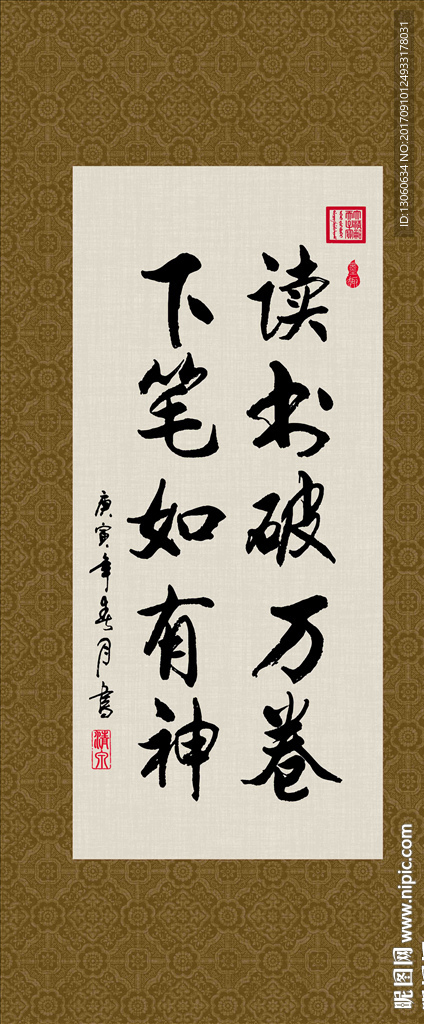 读书破万卷
下笔如有神
庚寅年春月書
清泉
ID:13060634 NO:20170910124933178031
昵图网 www.nipic.com